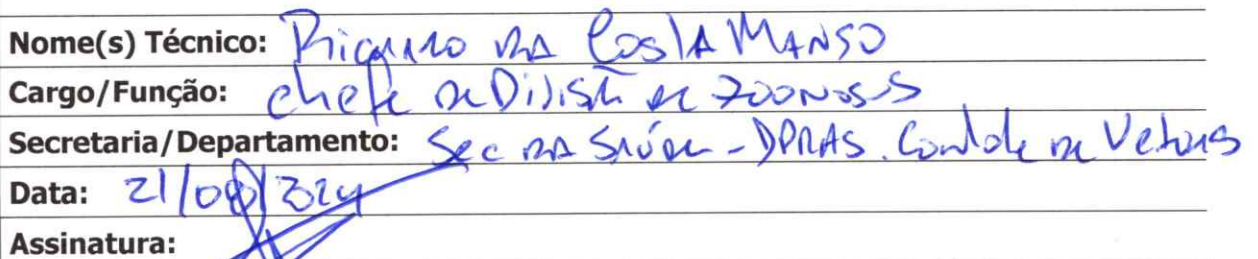 Nome(s) Técnico: Ricardo da Costa Manso
Cargo/Função: chefe de Divisão de Zoonoses
Secretaria/Departamento: Sec da Saúde - DPRAS. Controle de Vetores
Data: 21/08/2024
Assinatura: